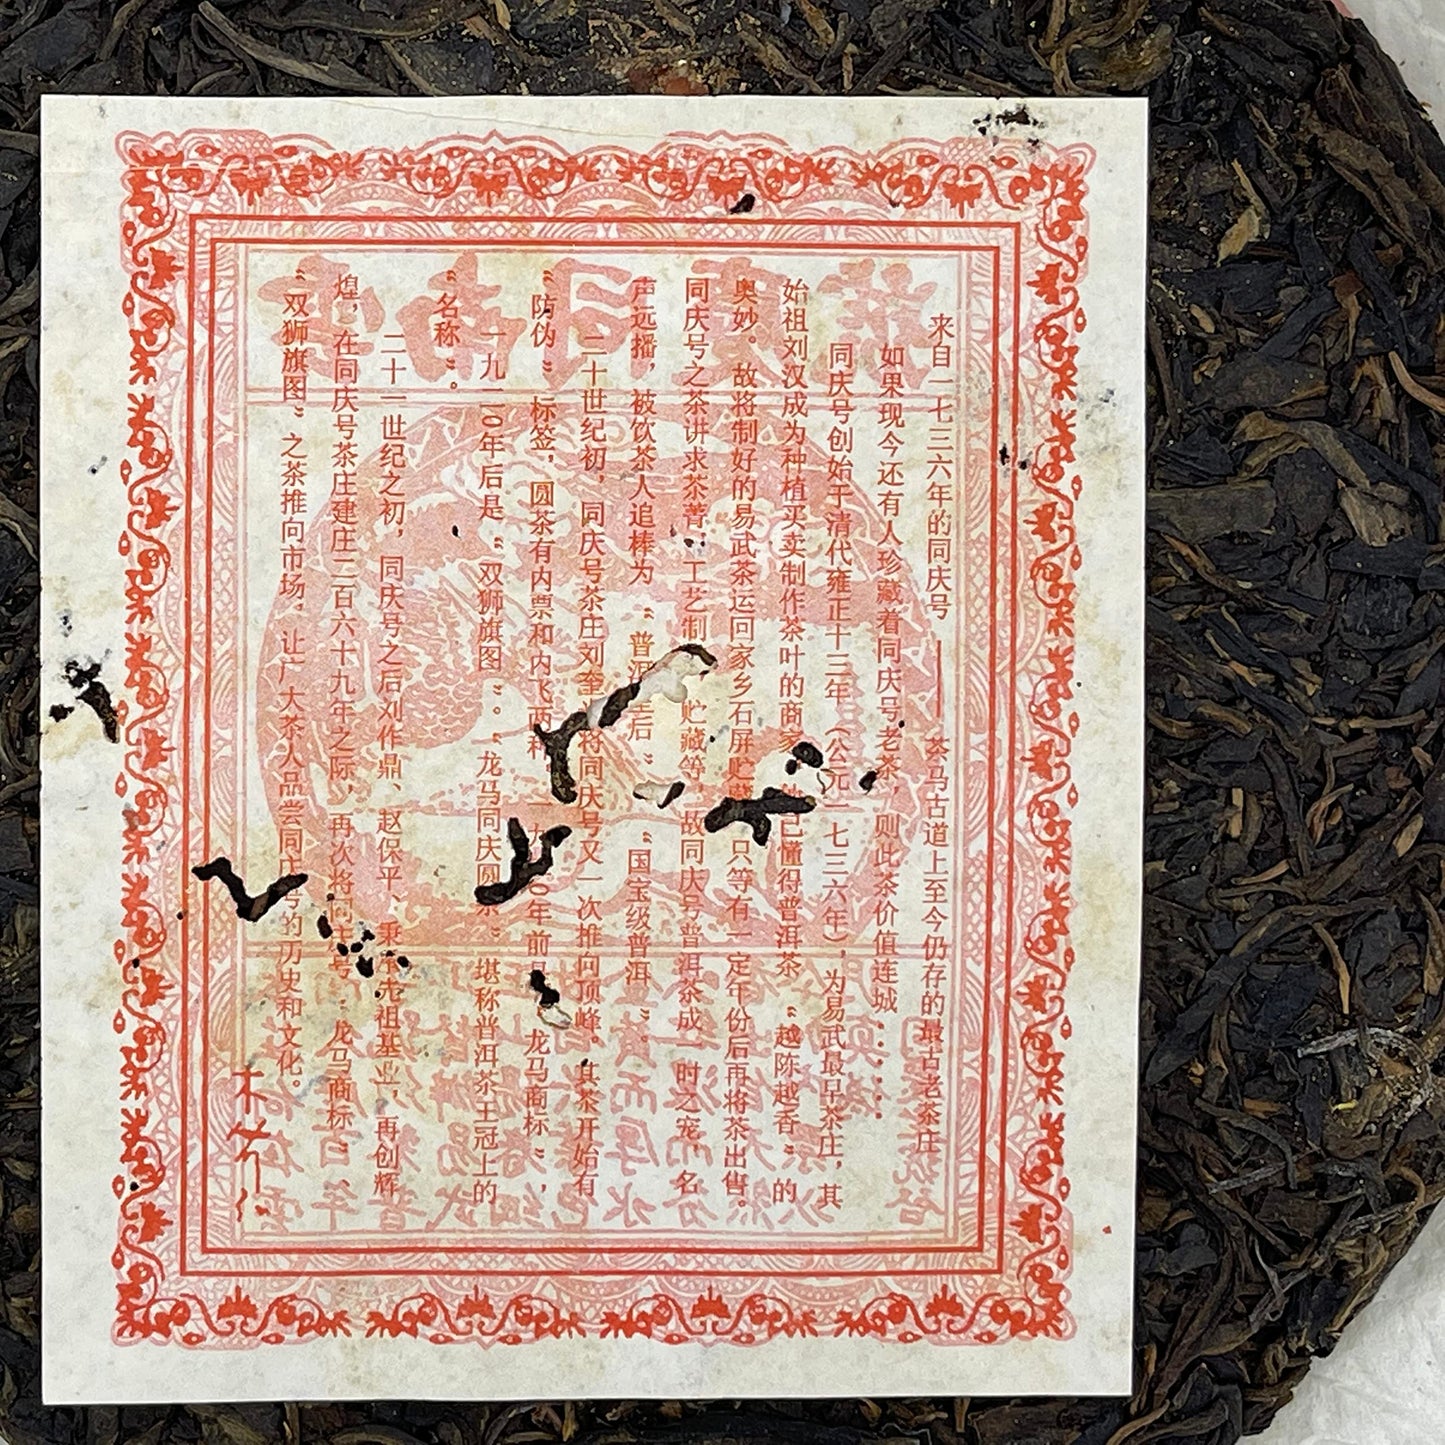 来自一七三六年的同庆号——茶马古道上至今仍存的最古老茶庄
如果现今还有人珍藏着同庆号老茶，则此茶价值连城……
同庆号创始于清代雍正十三年（公元一七三六年），为易武最早茶庄，其
始祖刘汉成为种植买卖制作茶叶的商家，已懂得普洱茶“越陈越香”的
奥妙。故将制好的易武茶运回家乡石屏贮藏，只等有一定年份后再将茶出售。
同庆号之茶讲求茶菁，工艺制 贮藏等，故同庆号普洱茶成 时之宠，名
声远播，被饮茶人追棒为“普洱 后”“国宝级普洱”。
二十世纪初，同庆号茶庄刘奎 将同庆号又一次推向顶峰。其茶开始有
“防伪”标签，圆茶有内票和内飞两种 一九 0年前是 龙马商标”，
一九二0年后是“双狮旗图”。“龙马同庆圆茶”堪称普洱茶王冠上的
“名称”。
二十一世纪之初，同庆号之后刘作鼎、赵保平、秉承先祖基业，再创辉
煌，在同庆号茶庄建庄二百六十九年之际，再次将同庆号“龙马商标”、
“双狮旗图”之茶推向市场，让广大茶人品尝同庆号的历史和文化。